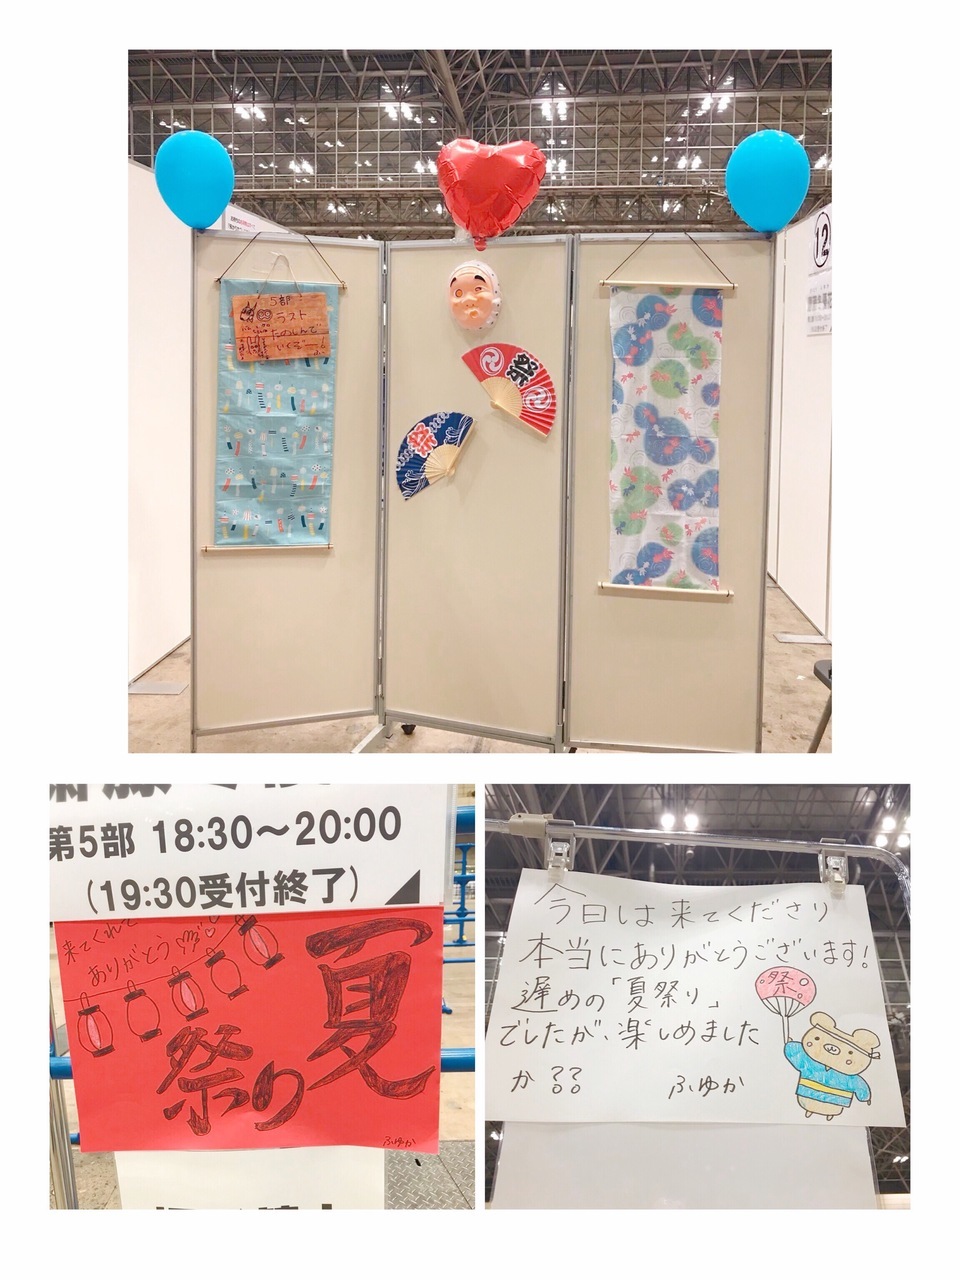 5部
ラスト
たのしんで
いくぞー!
祭
祭
12
第5部 18:30～20:00
(19:30受付終了)
来てくれて
ありがとう
夏
祭り
ふゆか
今日は来てくださり
本当にありがとうございます!
遅めの「夏祭り」
でしたが、楽しめました
か??
ふゆか
祭